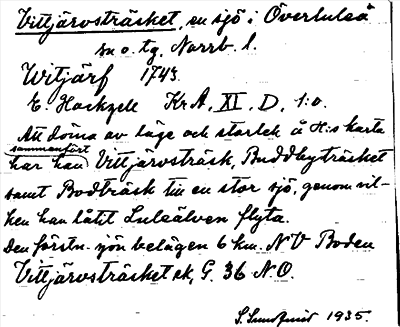 Vittjärvsträsket, en sjö i Överluleå
sn o. tg. Norrb. l.
Witjärf 1743
E. Hackzell Kr A. XI. D, 1:o.
Att döma av läge och storlek å H:s karta
har han sammanfört Vittjärvsträsk, Buddbyträsket
samt Bodträsk till en stor sjö, genom vil-
ken han låtit Luleälven flyta.
Den förstn. sjön belägen 6 km. NV Boden
Vittjärvsträsket ek. G. 36 N.O.
S. Sundqvist 1935.